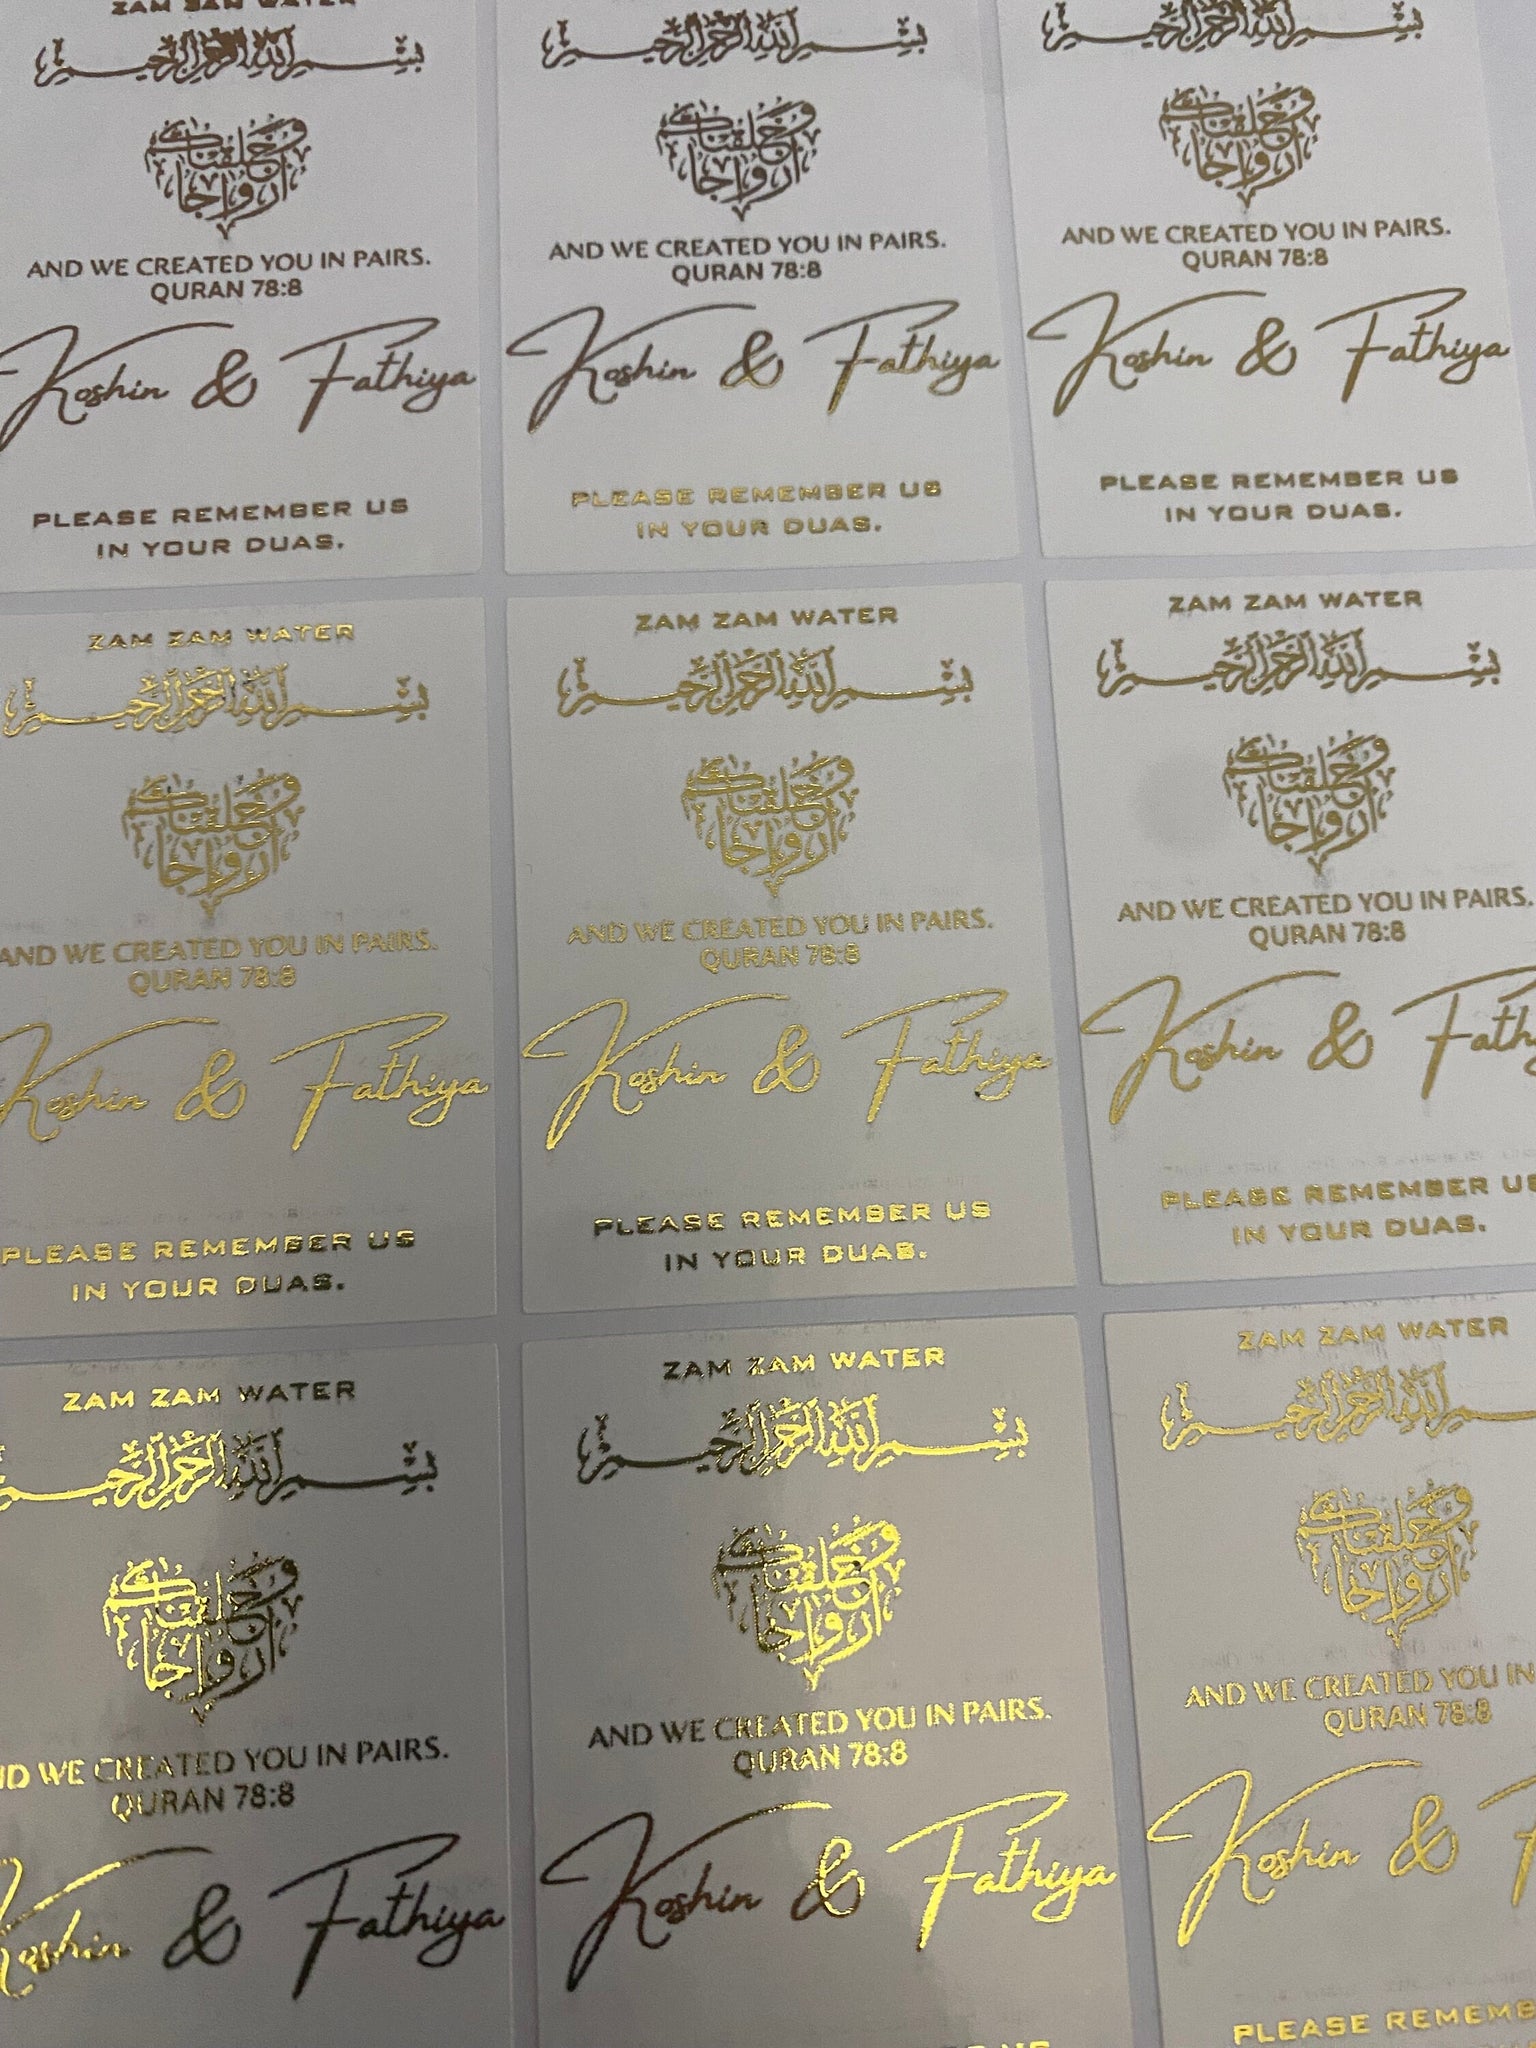 ZAM ZAM WATER
بسم الله الرحمن الرحيم
وخلقناكم
أزواجا
AND WE CREATED YOU IN PAIRS.
QURAN 78:8
Koshin & Fathiya
PLEASE REMEMBER US
IN YOUR DUAS.
بسم الله الرحمن الرحيم
وخلقناكم
أزواجا
AND WE CREATED YOU IN PAIRS.
QURAN 78:8
Koshin & Fathiya
PLEASE REMEMBER US
IN YOUR DUAS.
بسم الله الرحمن الرحيم
وخلقناكم
أزواجا
AND WE CREATED YOU IN PAIRS.
QURAN 78:8
Koshin & Fathiya
PLEASE REMEMBER US
IN YOUR DUAS.
ZAM ZAM WATER
بسم الله الرحمن الرحيم
وخلقناكم
أزواجا
AND WE CREATED YOU IN PAIRS.
QURAN 78:8
Koshin & Fathiya
PLEASE REMEMBER US
IN YOUR DUAS.
ZAM ZAM WATER
بسم الله الرحمن الرحيم
وخلقناكم
أزواجا
AND WE CREATED YOU IN PAIRS.
QURAN 78:8
Koshin & Fathiya
PLEASE REMEMBER US
IN YOUR DUAS.
ZAM ZAM WATER
بسم الله الرحمن الرحيم
وخلقناكم
أزواجا
AND WE CREATED YOU IN PAIRS.
QURAN 78:8
Koshin & Fathy
PLEASE REMEMBER US
IN YOUR DUAS.
ZAM ZAM WATER
بسم الله الرحمن الرحيم
وخلقناكم
أزواجا
ND WE CREATED YOU IN PAIRS.
QURAN 78:8
Koshin & Fathiya
ZAM ZAM WATER
بسم الله الرحمن الرحيم
وخلقناكم
أزواجا
AND WE CREATED YOU IN PAIRS.
QURAN 78:8
Koshin & Fathiya
ZAM ZAM WATER
بسم الله الرحمن الرحيم
وخلقناكم
أزواجا
AND WE CREATED YOU IN
QURAN 78:8
Koshin &
PLEASE REMEMB